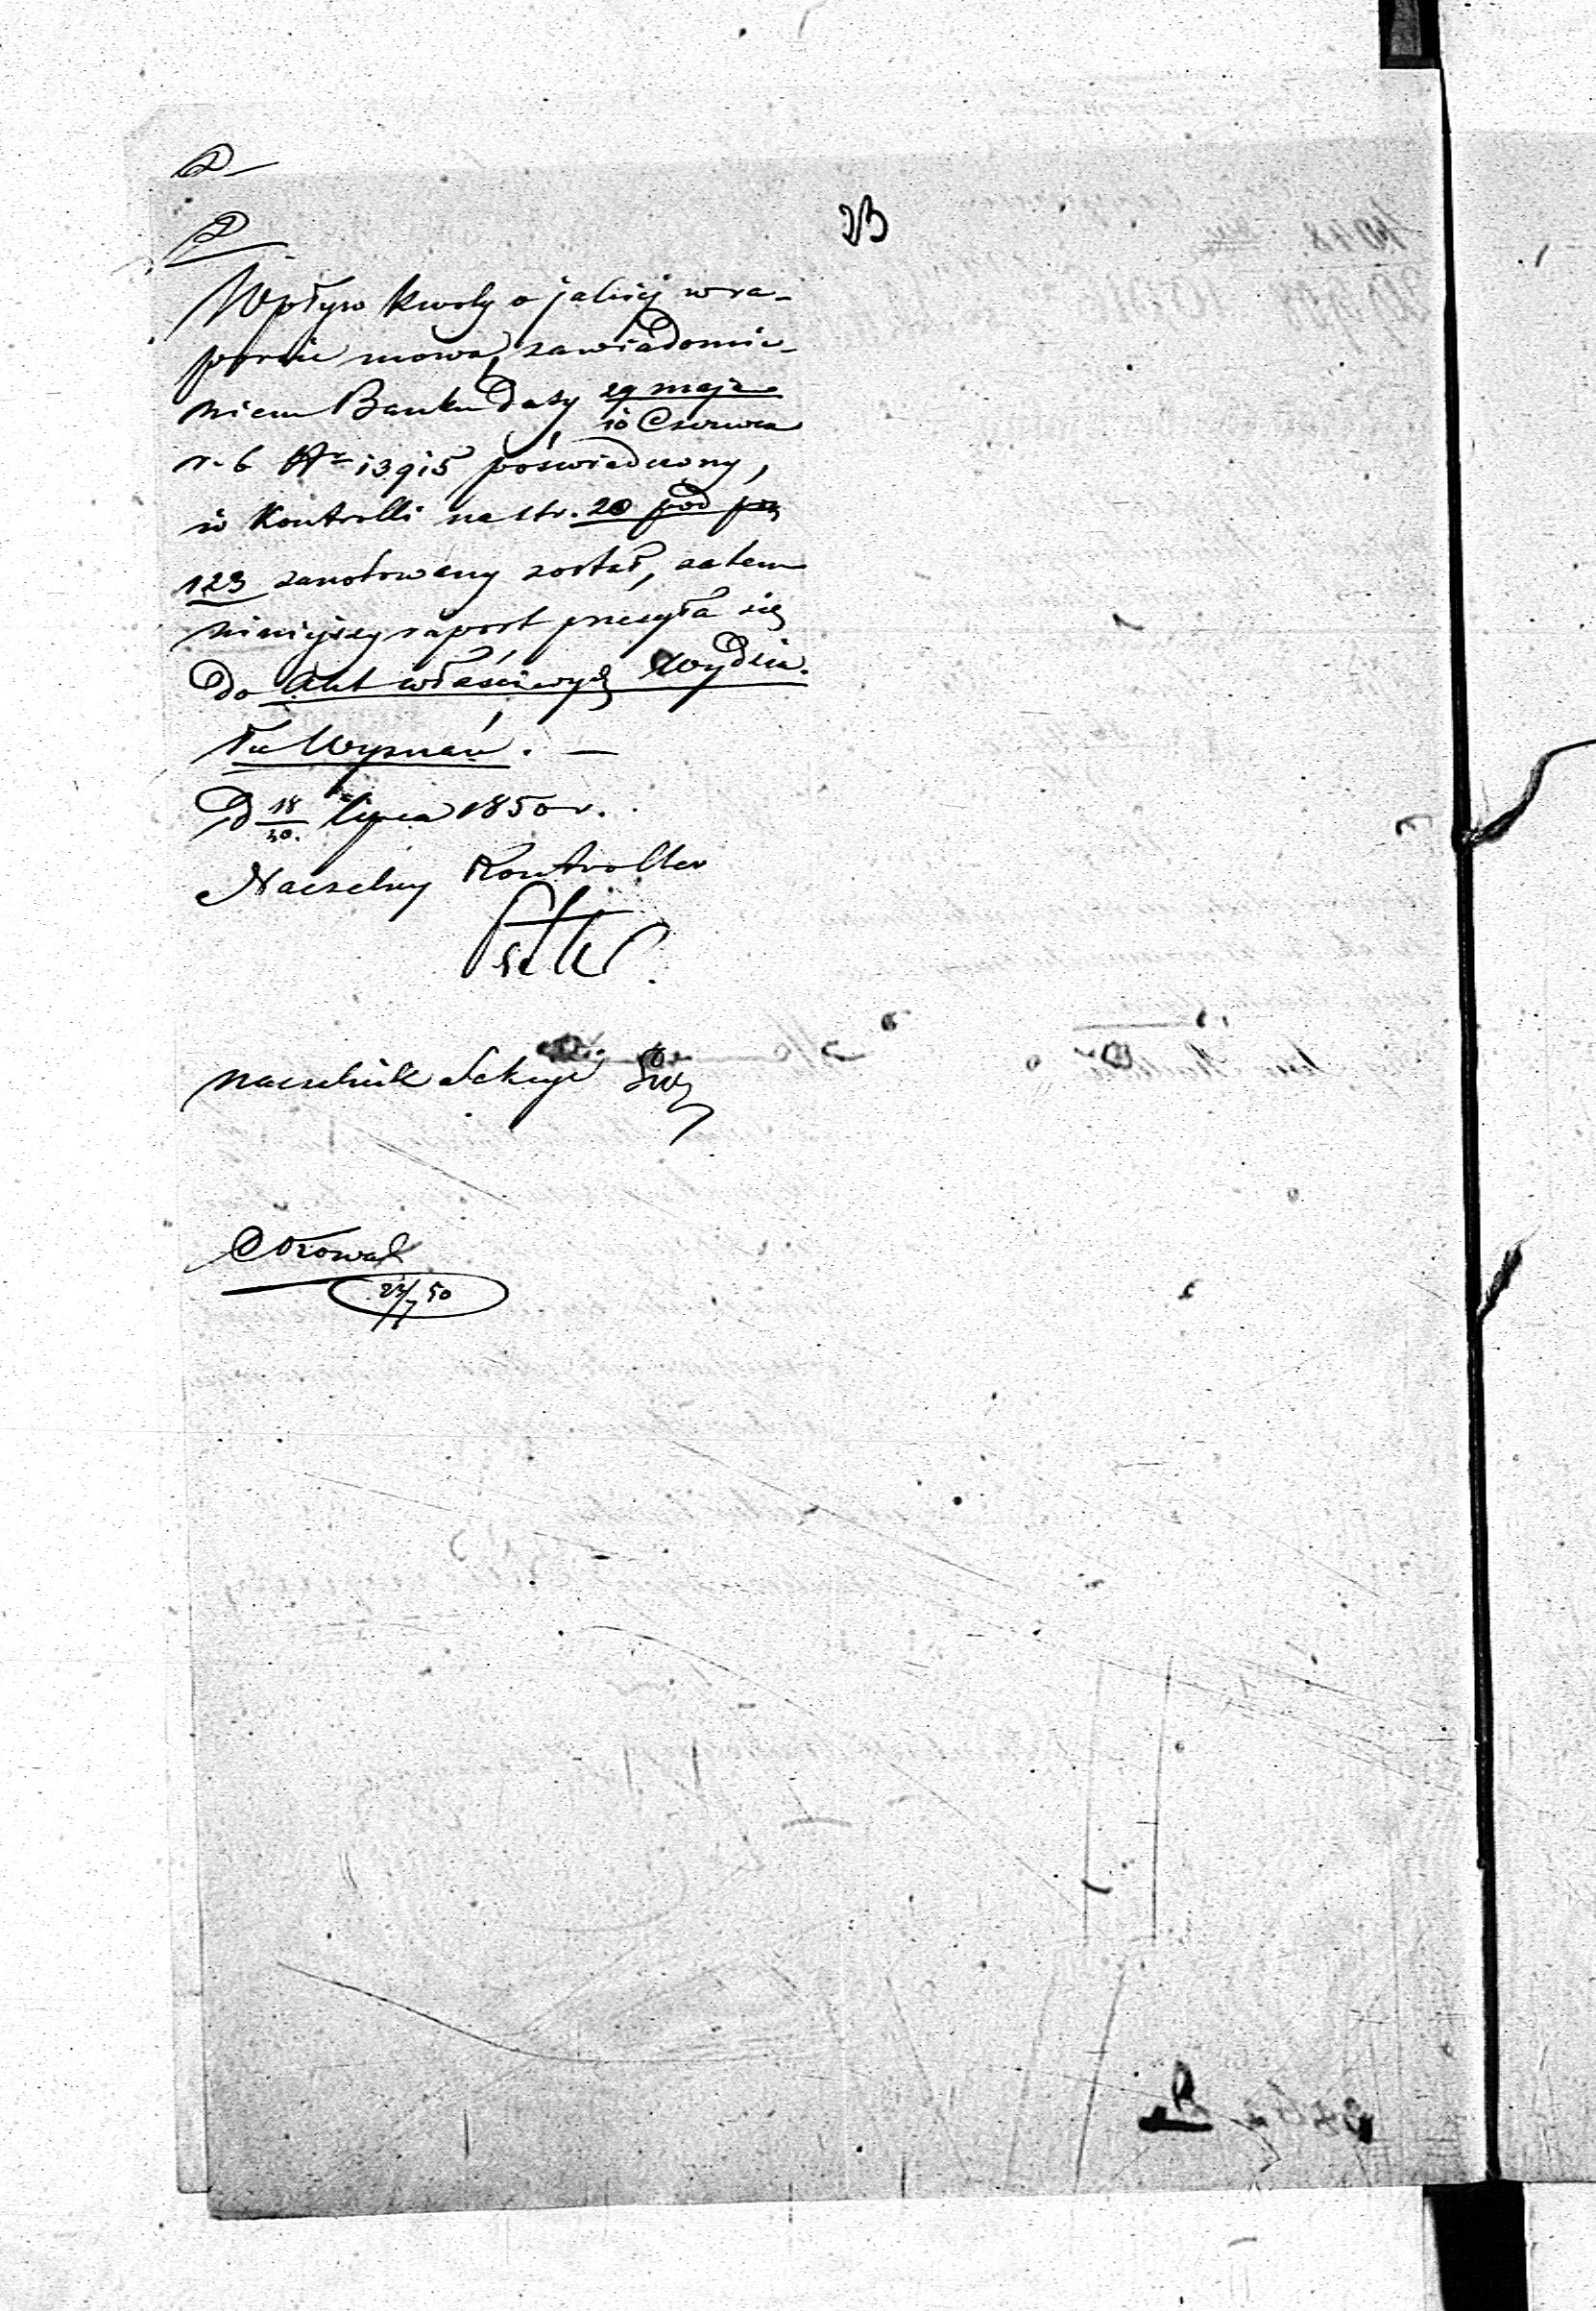 Wpływ kwoty o jakiéj w ra-
porcie mowa, zawiadomie-
niem Banku daty 29 maja
10 Czerwca
r. b. Nr 13915 poświadczony,
w Kontrolli na str. 20 pod poz
123 zanotowany został, zatem
niniejszy raport przesyła się
do Akt właściwych Wydzia-
łu Wyznań. —
D 18/30. lipca 1850 r.
Naczelny Kontroller
Naczelnik Sekcyi
23/7 50